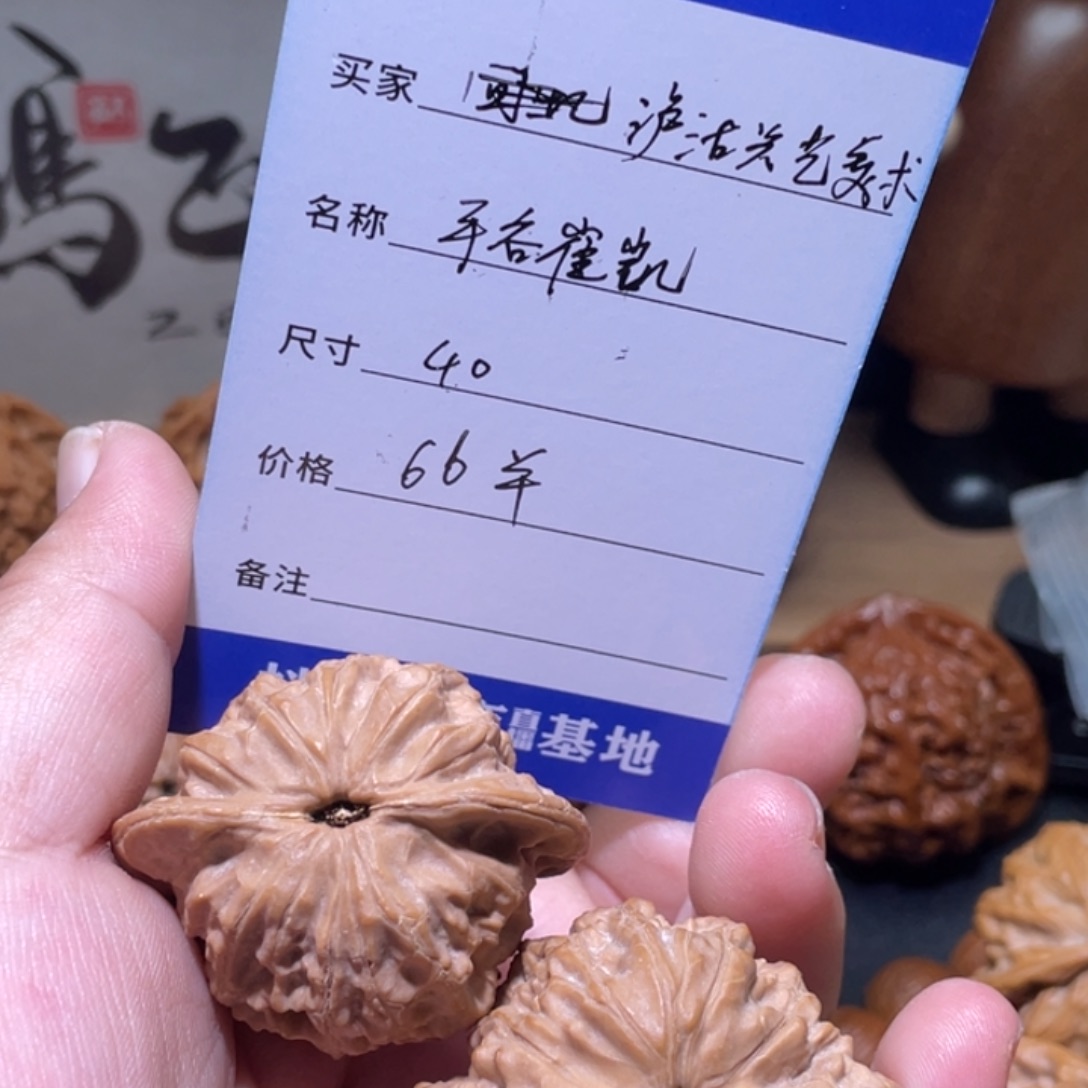 馬飞
买家 泸沽关艺美术
名称 平谷崔凯
尺寸 40
价格 66羊
备注
基地